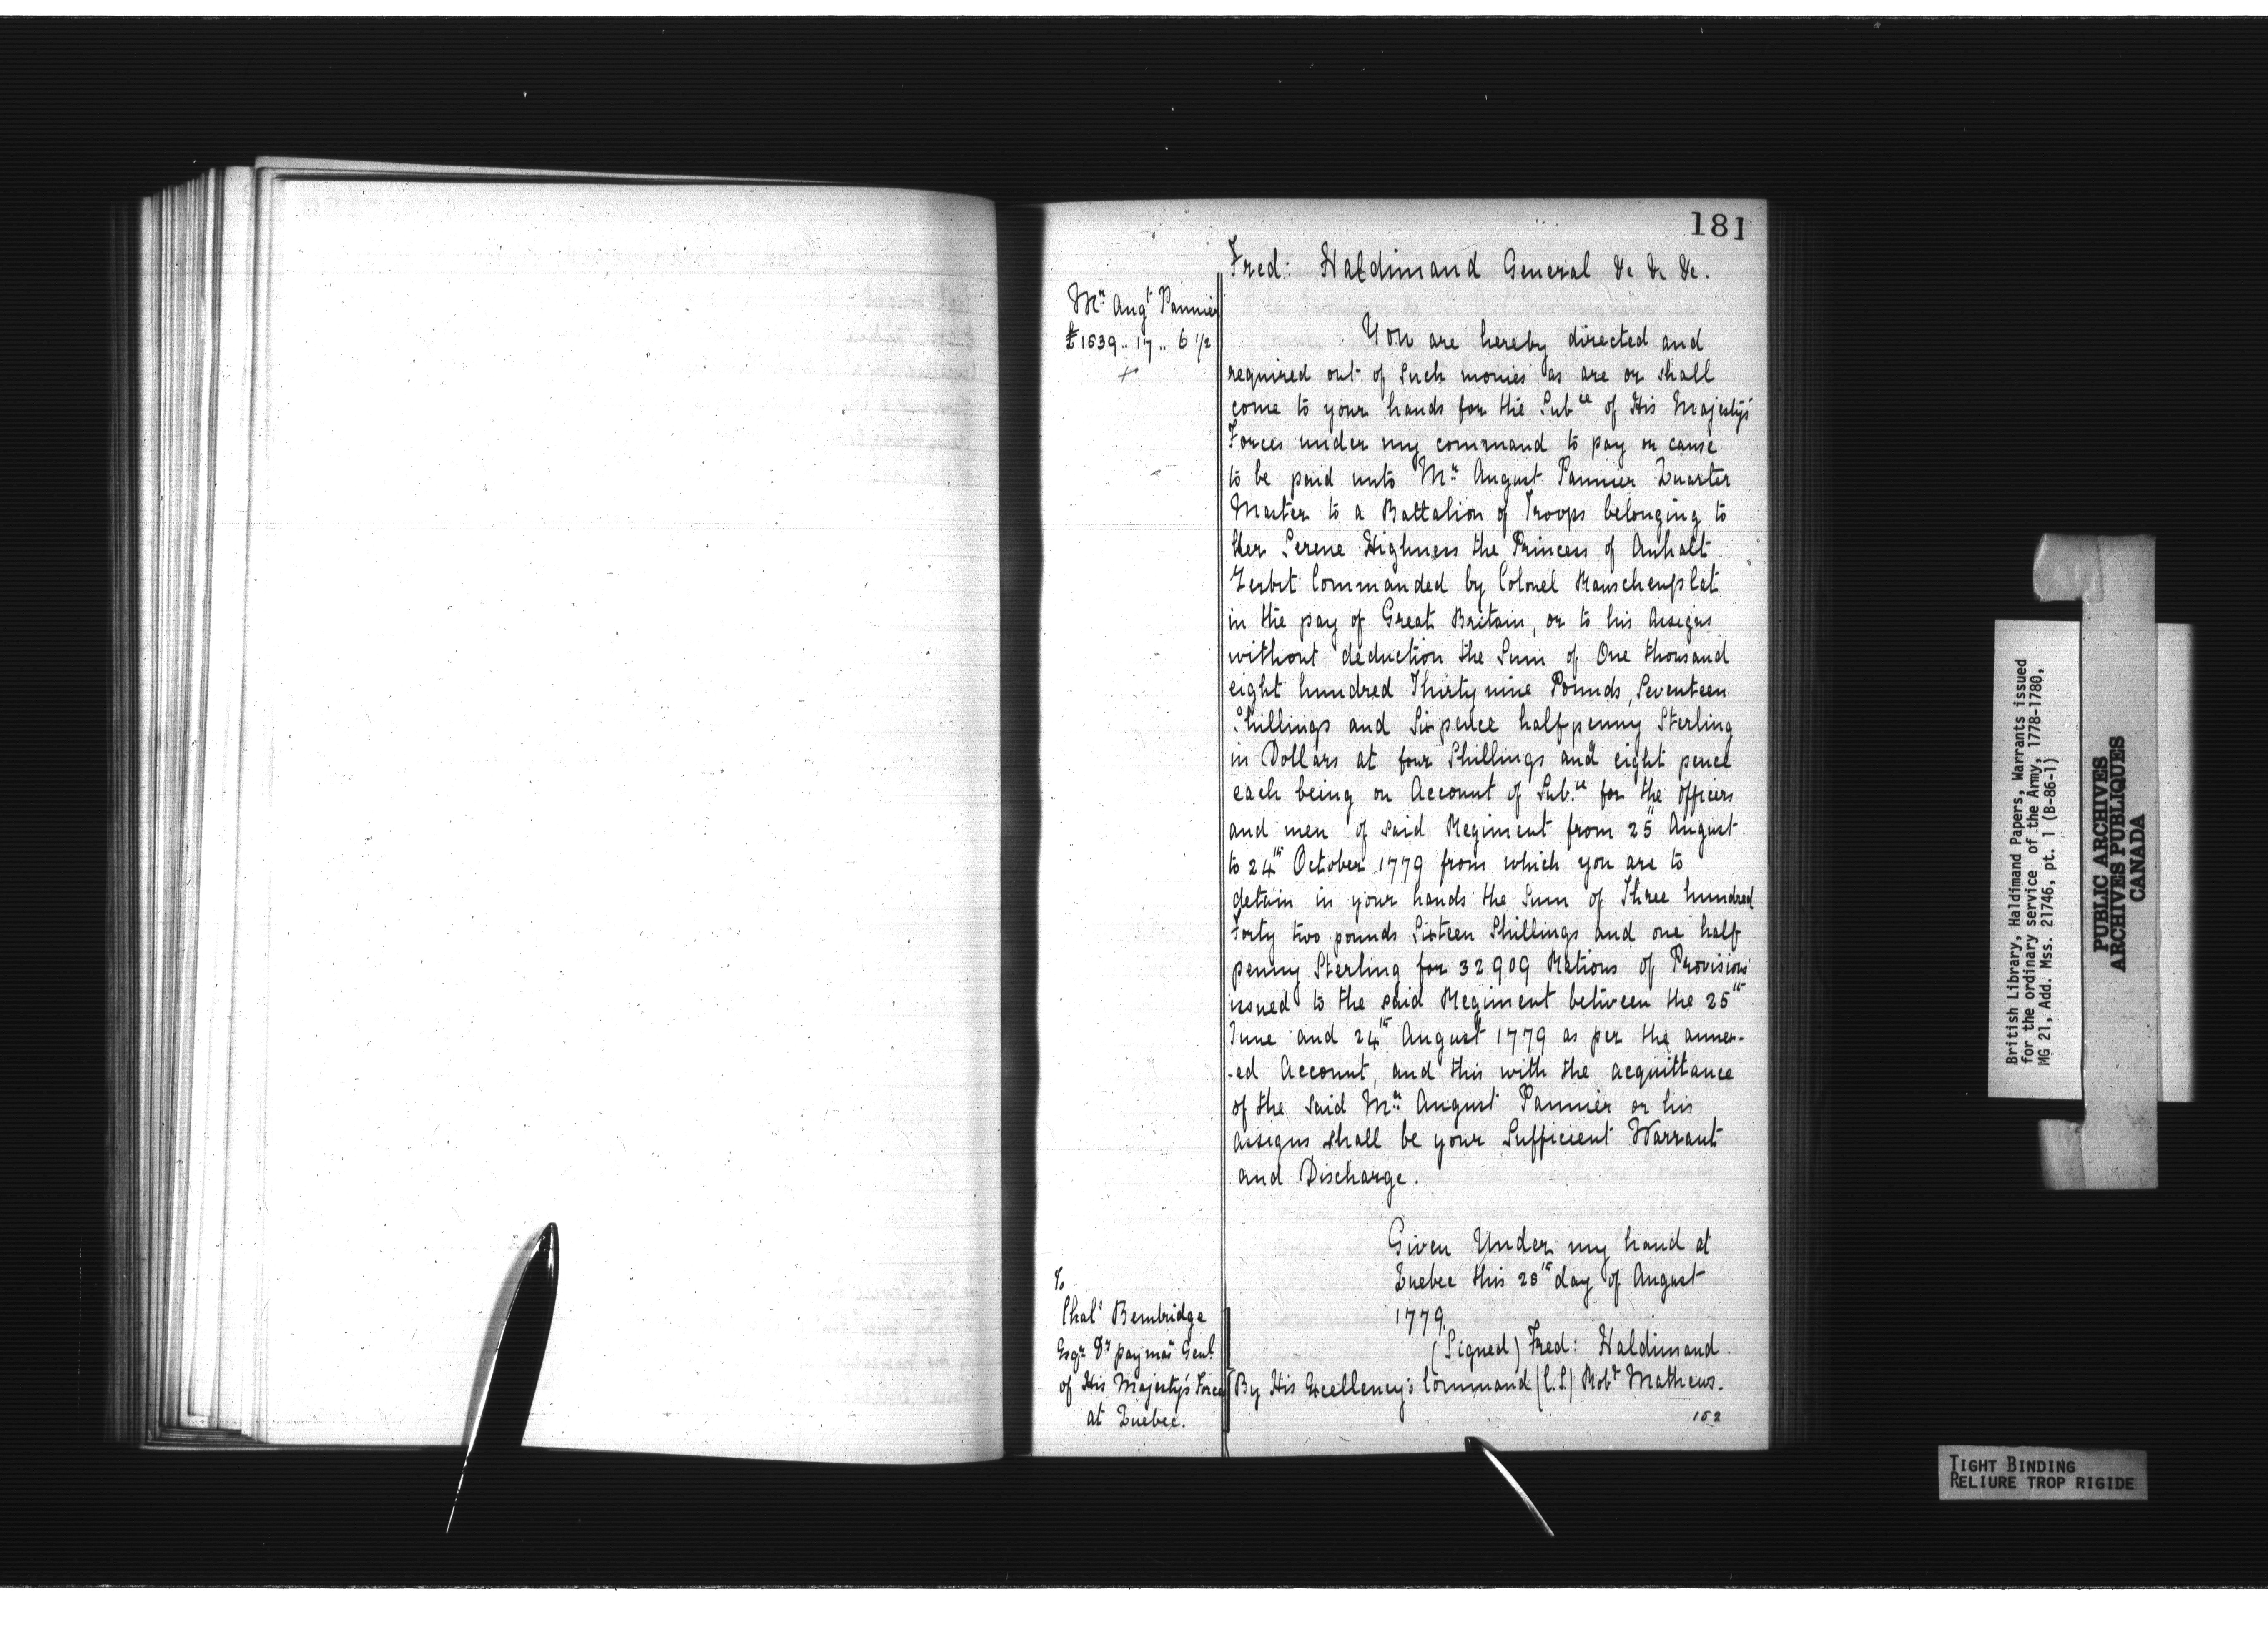 181
Fred: Haldimand General &c &c &c.
Mr. Augt Pannier
£1639.. 17.. 6 1/2
+
You are hereby directed and
required out of such monies as are or shall
come to your hands for the Subce of His Majesty's
Forces under my command to pay or cause
to be paid unto Mr. August Pannier Quarter
Master to a Battalion of Troops belonging to
Her Serene Highness the Princess of Anhalt
Zerbst Commanded by Colonel Rauschenplat
in the pay of Great Britain, or to his Assigns
without deduction the Sum of One thousand
eight hundred Thirty nine Pounds, Seventeen
Shillings and Sixpence halfpenny Sterling
in Dollars at four Shillings and eight pence
each being on Account of Sub.ce for the officers
and men of said Regiment from 25 August
to 24th October 1779 from which you are to
detain in your hands the Sum of Three hundred
Forty two pounds Sixteen Shillings and one half
penny Sterling for 32909 Rations of Provisions
issued to the said Regiment between the 25th
June and 24th August 1779 as per the annex-
-ed Account, and this with the acquittance
of the said Mr. August Pannier or his
assigns shall be your Sufficient Warrant
and Discharge.
Given Under my hand at
Quebec this 28th day of August
1779.
(Signed) Fred: Haldimand.
By His Excellency's Command (C.S) Robt Mathews.
To
Chals Bembridge
Esqr Dy paymar Genl
of His Majesty's Forces
at Quebec.
152
British Library, Haldimand Papers, Warrants issued
for the ordinary service of the Army, 1778-1780,
MG 21, Add. Mss. 21746, pt. 1 (B-86-1)
PUBLIC ARCHIVES
ARCHIVES PUBLIQUES
CANADA
TIGHT BINDING
RELIURE TROP RIGIDE